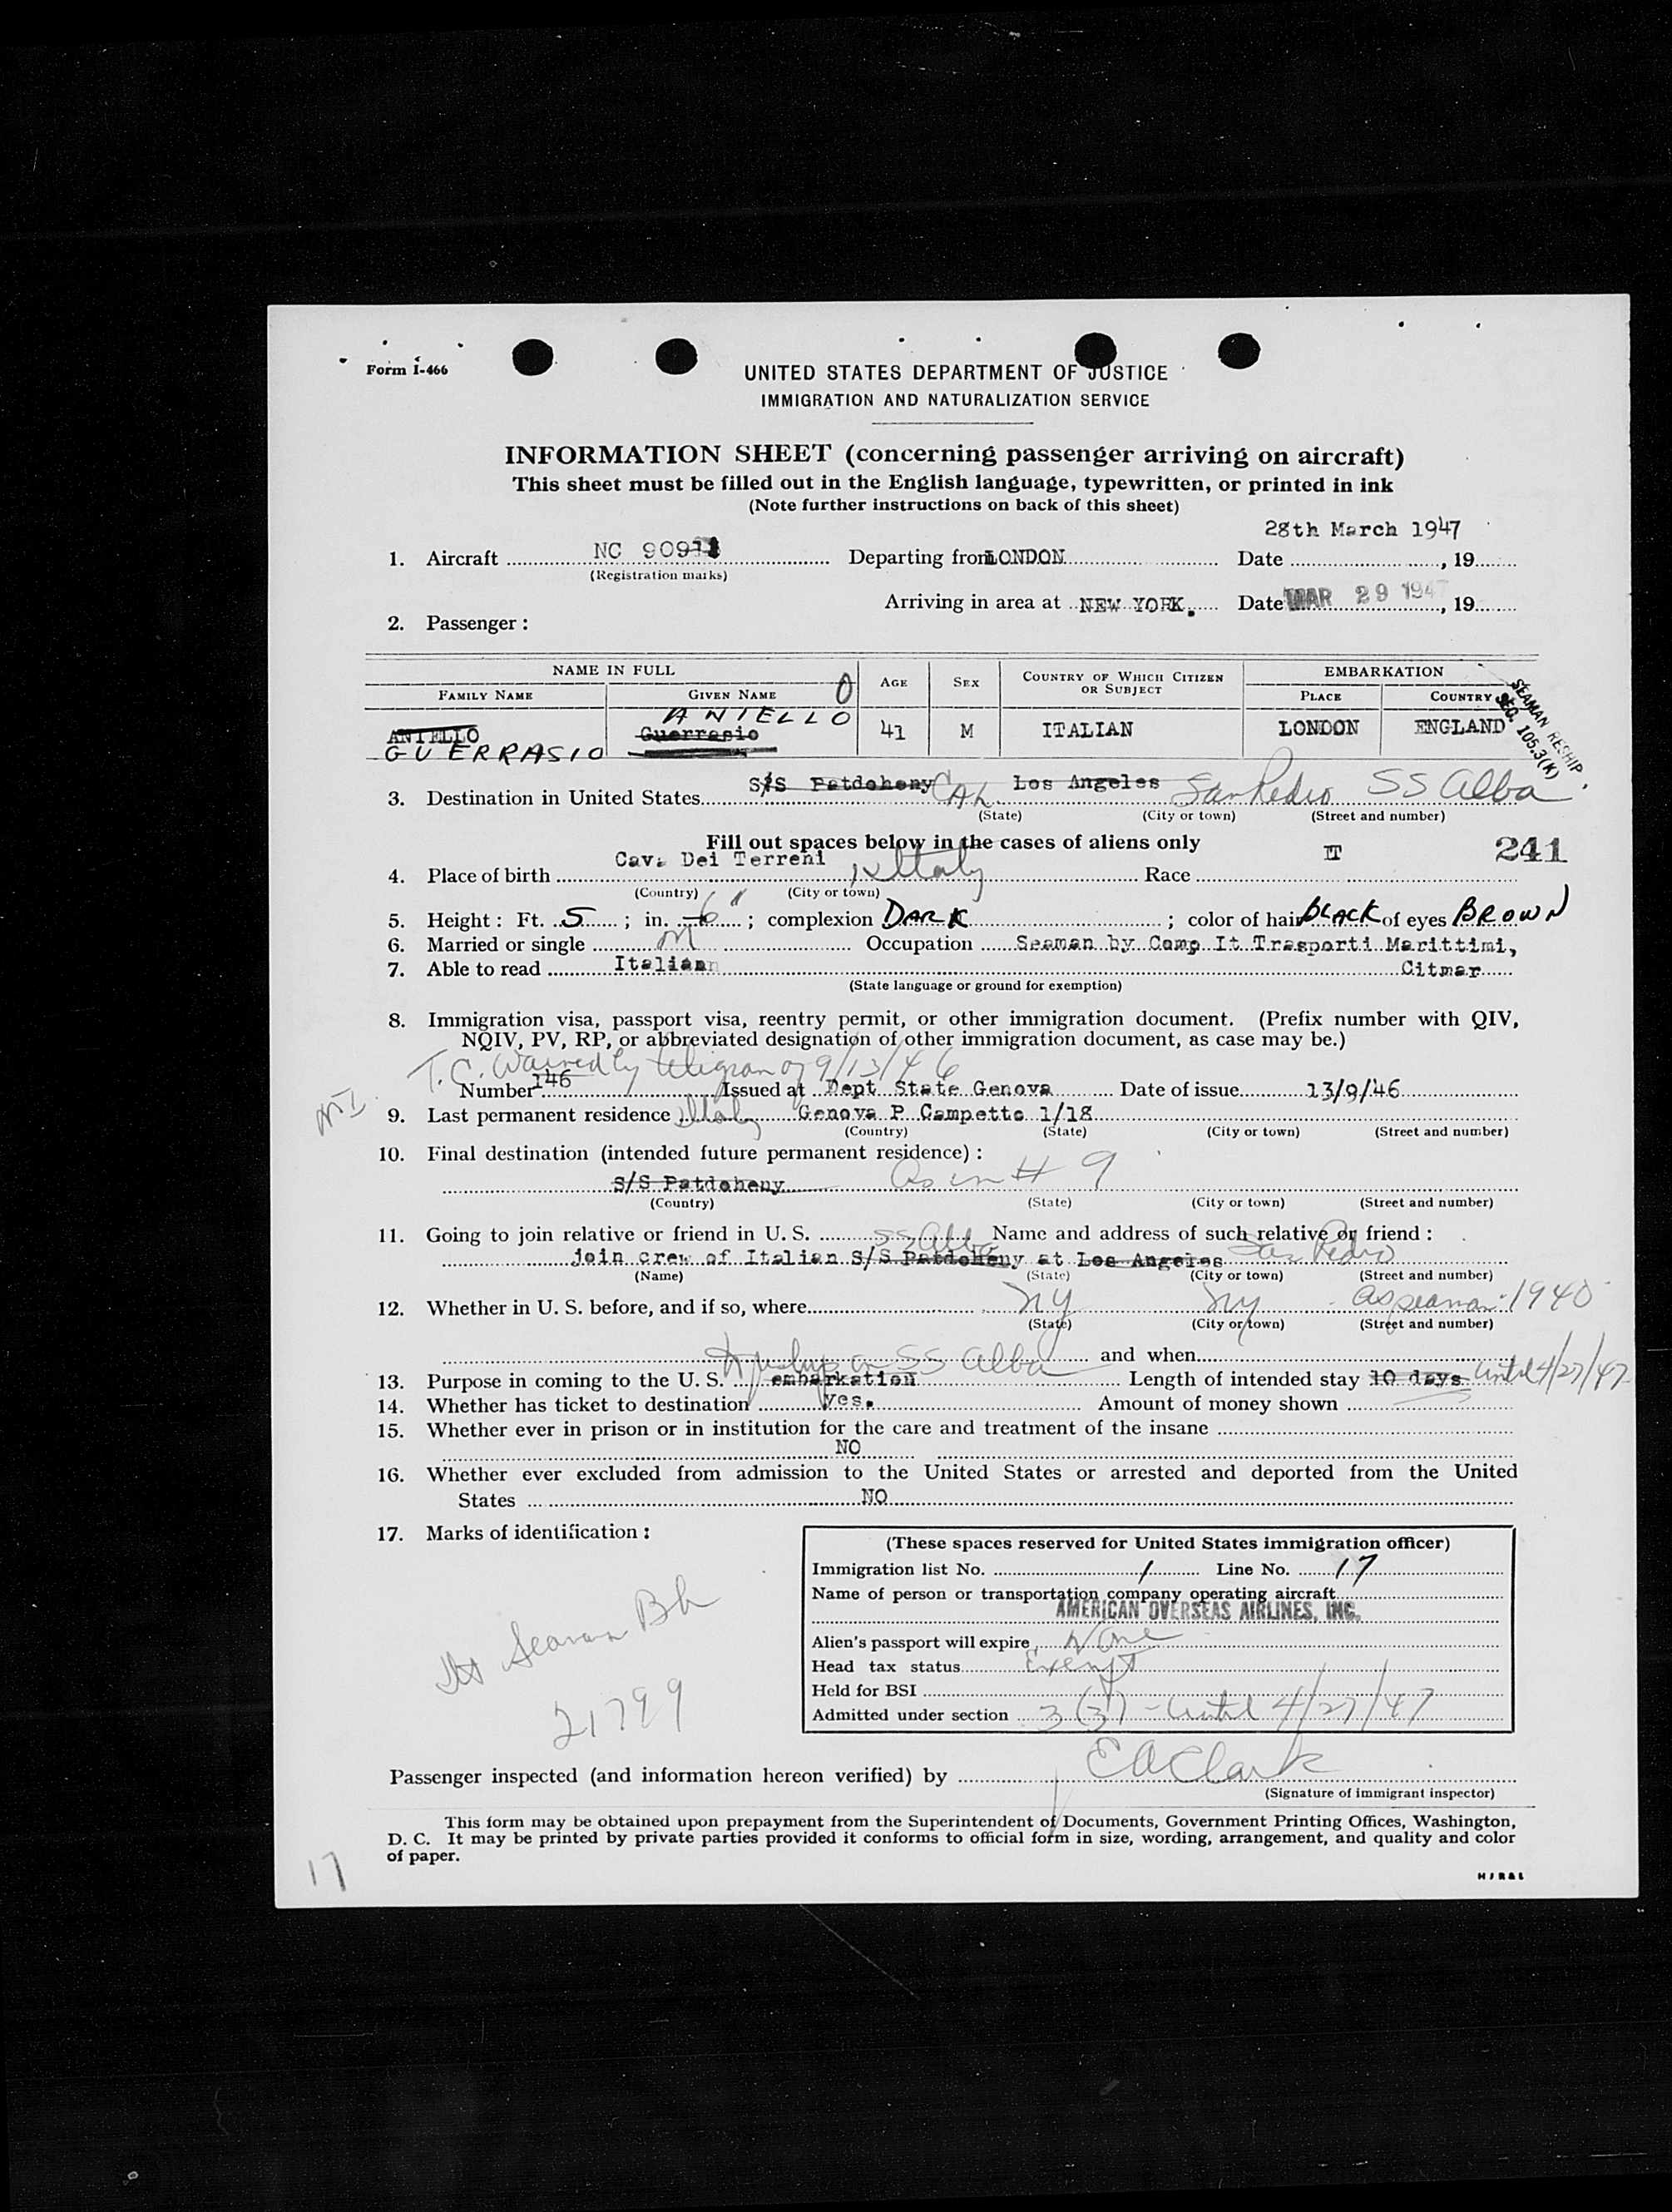 Form I-466
UNITED STATES DEPARTMENT OF JUSTICE
IMMIGRATION AND NATURALIZATION SERVICE
INFORMATION SHEET (concerning passenger arriving on aircraft)
This sheet must be filled out in the English language, typewritten, or printed in ink
(Note further instructions on back of this sheet)
28th March 1947
1. Aircraft NC Departing from LONDON Date , 19
(Registration marks)
Arriving in area at NEW YORK. Date MAR 29 1947 , 19
2. Passenger :
NAME IN FULL 0 AGE SEX COUNTRY OF WHICH CITIZEN OR SUBJECT EMBARKATION
FAMILY NAME GIVEN NAME PLACE COUNTRY
SEAMAN RESHIP
SEC. 105.3(K)
ANIELLO
ANIELLO Guerrasio 41 M ITALIAN LONDON ENGLAND
GUERRASIO
3. Destination in United States S/S Patdoheny CAL Los Angeles San Pedro SS Alba
(State) (City or town) (Street and number)
Fill out spaces below in the cases of aliens only IT 241
4. Place of birth Cav. Dei Terreni Italy Race
(Country) (City or town)
5. Height : Ft. 5 ; in. 6" ; complexion DARK ; color of hair BLACK of eyes BROWN
6. Married or single M Occupation Seaman by Comp It Trasporti Marittimi,
7. Able to read Italian Citmar
(State language or ground for exemption)
8. Immigration visa, passport visa, reentry permit, or other immigration document. (Prefix number with QIV,
NQIV, PV, RP, or abbreviated designation of other immigration document, as case may be.)
T.C. Waived by telegram of 9/13/46
Number 146 Issued at Dept State Genova Date of issue 13/9/46
9. Last permanent residence Italy Genova P Campetto 1/18
(Country) (State) (City or town) (Street and number)
10. Final destination (intended future permanent residence) :
S/S Patdoheny As in # 9
(Country) (State) (City or town) (Street and number)
11. Going to join relative or friend in U. S. SS Alba Name and address of such relative or friend :
join crew of Italian S/S Patdoheny at Los Angeles San Pedro
(Name) (State) (City or town) (Street and number)
12. Whether in U. S. before, and if so, where NY NY as seaman 1940
(State) (City or town) (Street and number)
To reship on SS Alba and when
13. Purpose in coming to the U. S. embarkation Length of intended stay 10 days until 4/27/47
14. Whether has ticket to destination yes. Amount of money shown
15. Whether ever in prison or in institution for the care and treatment of the insane
NO
16. Whether ever excluded from admission to the United States or arrested and deported from the United
States NO
17. Marks of identification :
It Seaman Bk
21799
(These spaces reserved for United States immigration officer)
Immigration list No. 1 Line No. 17
Name of person or transportation company operating aircraft
AMERICAN OVERSEAS AIRLINES, INC.
Alien's passport will expire None
Head tax status Exempt
Held for BSI
Admitted under section 3(5) - until 4/27/47
Passenger inspected (and information hereon verified) by EA Clark
(Signature of immigrant inspector)
This form may be obtained upon prepayment from the Superintendent of Documents, Government Printing Offices, Washington,
D. C. It may be printed by private parties provided it conforms to official form in size, wording, arrangement, and quality and color
of paper.
17